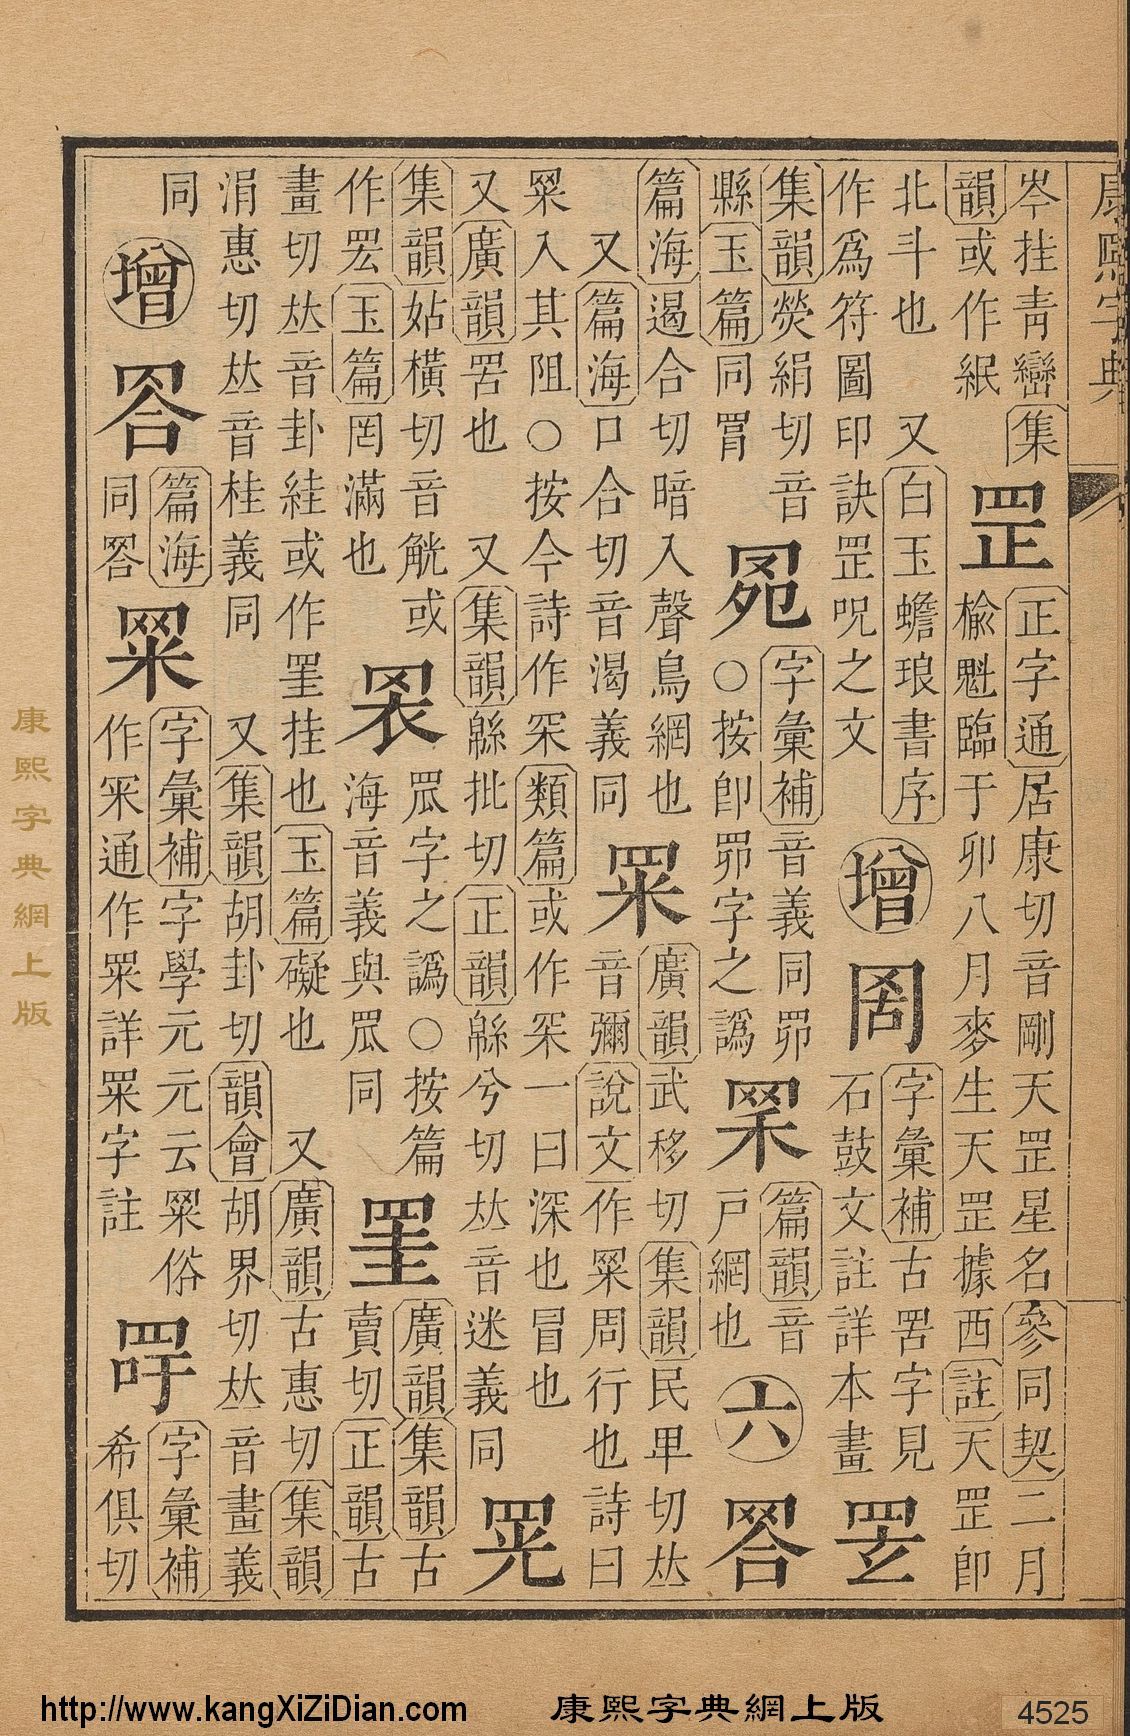 康熙字典
岑挂青巒集韻或作 罡正字通居康切音剛天罡星名參同契二月榆魁臨于卯八月麥生天罡據西註天罡卽
北斗也 又白玉蟾琅書序作爲符圖印訣罡呪之文 增 字彙補古罟字見石鼓文註詳本畫
集韻熒絹切音縣玉篇同罥 字彙補音義同 ○按卽 字之譌 篇韻音戶網也 六
篇海遏合切暗入聲鳥網也 又篇海口合切音渴義同 冞廣韻武移切集韻民𤰞切𠀤音彌說文作冞周行也詩曰
冞入其阻○按今詩作罙類篇或作罙一曰深也冒也 又廣韻罟也 又集韻緜批切正韻緜兮切𠀤音迷義同
集韻姑橫切音觥或作 玉篇罔滿也 罛字之譌○按篇海音義與罛同 罣廣韻集韻古賣切正韻古
畫切𠀤音卦絓或作罣挂也玉篇礙也 又廣韻古惠切集韻涓惠切𠀤音桂義同 又集韻胡卦切韻會胡界切𠀤音畫義
同 增 篇海同 冞字彙補字學元元云冞俗作 通作冞詳冞字註 字彙補希俱切
康熙字典網上版
http://www.kangXiZiDian.com 康熙字典網上版 4525